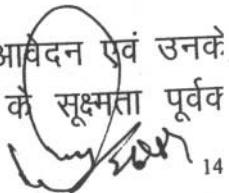 आवेदन एवं उनके
के सूक्ष्मता पूर्वक
14